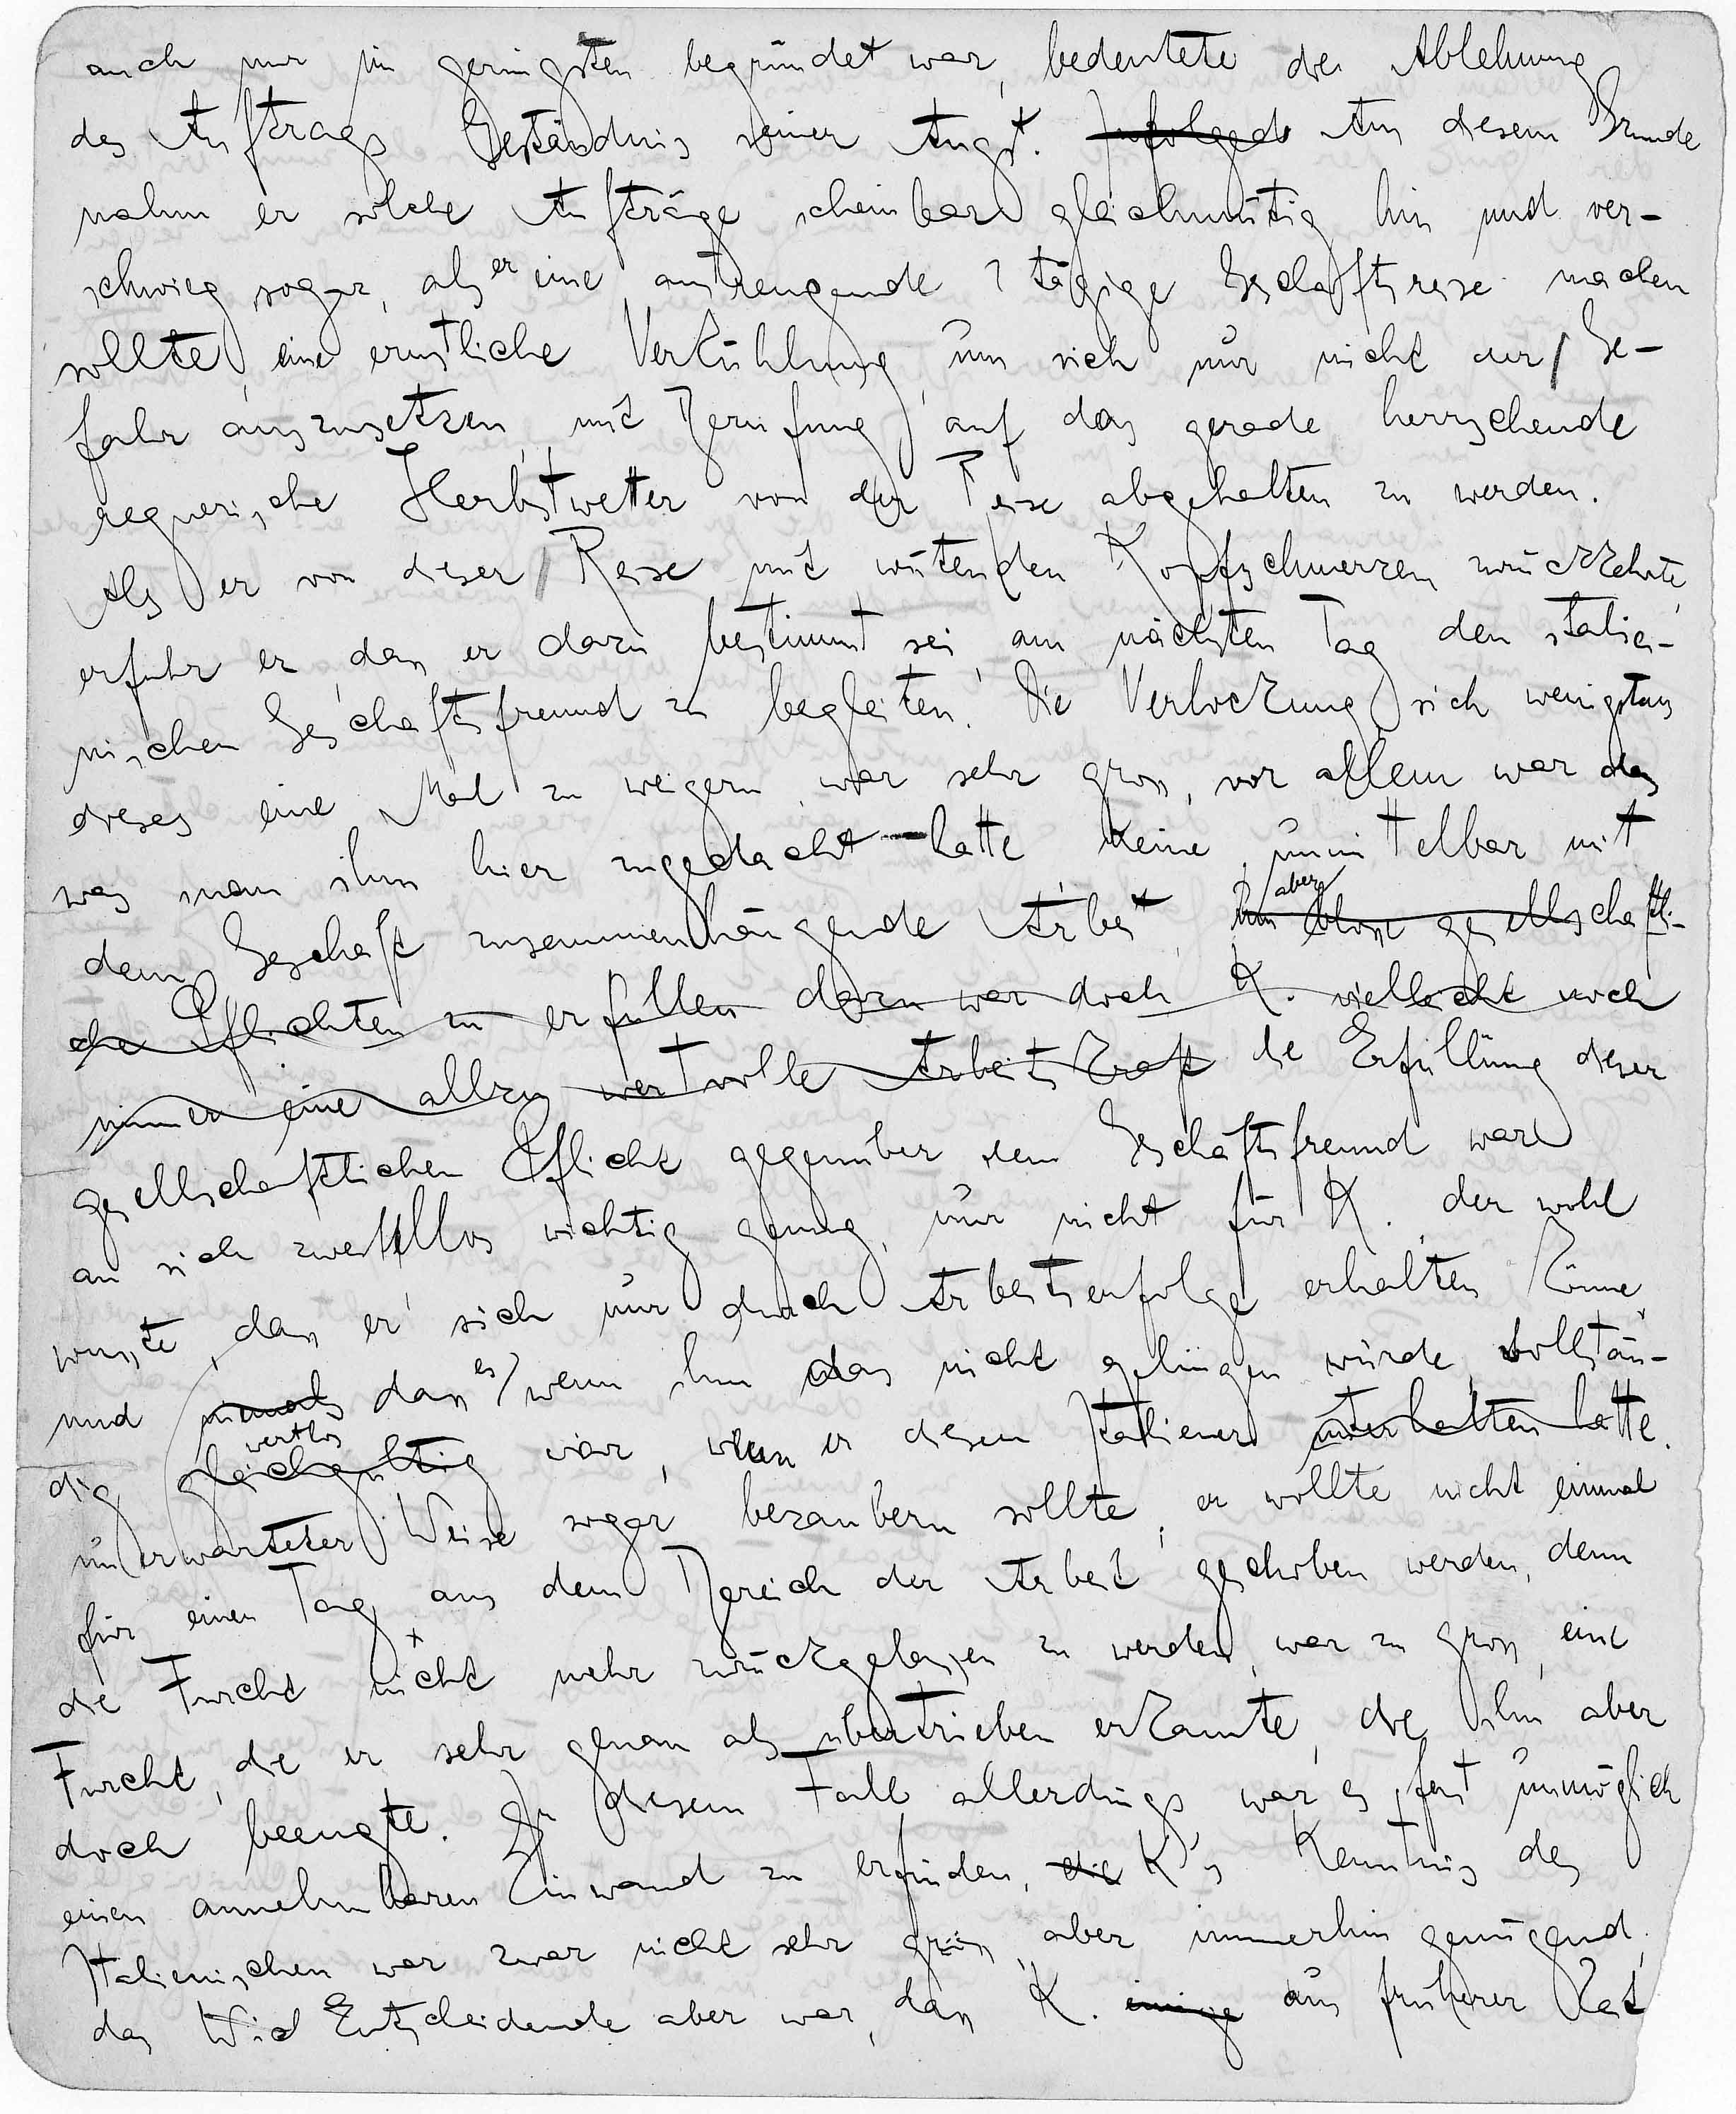 auch nur im geringsten begründet war, bedeutete die Ablehnung
des Auftrags Geständnis seiner Angst. Infolgede Aus diesem Grunde
nahm er solche Aufträge scheinbar gleichmütig hin und ver-
schwieg sogar, als er eine anstrengende 2 tägige Geschäftsreise machen
sollte, eine ernstliche Verkühlung, um sich nur nicht der Ge-
fahr auszusetzen, mit Berufung auf das gerade herrschende
regnerische Herbstwetter von der Reise abgehalten zu werden.
Als er von dieser Reise mit wütenden Kopfschmerzen zurückkehrte,
erfuhr er, dass er dazu bestimmt sei, am nächsten Tag den italie-
nischen Geschäftsfreund zu begleiten. Die Verlockung, sich wenigstens
dieses eine Mal zu weigern, war sehr gross, vor allem war das
was man ihm hier zugedacht hatte keine unmittelbar mit
dem Geschäft zusammenhängende Arbeit, aber bloss gesellschaftli-
che Pflichten zu erfüllen dazu war doch K. vielleicht noch
immer eine allzu wertvolle Arbeitskraft die Erfüllung dieser
gesellschaftlichen Pflicht gegenüber dem Geschäftsfreund war
an sich zweifellos wichtig genug, nur nicht für K., der wohl
wusste, dass er sich nur durch Arbeitserfolge erhalten könne
und dass es, wenn ihm das nicht gelingen würde, vollstän-
dig gleichgültig wertlos war, wenn er diesen Italiener unterhalten hatte.
unerwarteter Weise sogar bezaubern sollte; er wollte nicht einmal
für einen Tag aus dem Bereich der Arbeit geschoben werden, denn
die Furcht nicht mehr zurückgelassen zu werden, war zu gross, eine
Furcht, die er sehr genau als übertrieben erkannte, die ihn aber
doch beengte. In diesem Fall allerdings war es fast unmöglich
einen annehmbaren Einwand zu erfinden, die K's Kenntnis des
Italienischen war zwar nicht sehr gross, aber immerhin genügend;
das Entscheidende aber war, dass K. einige aus früherer Zeit